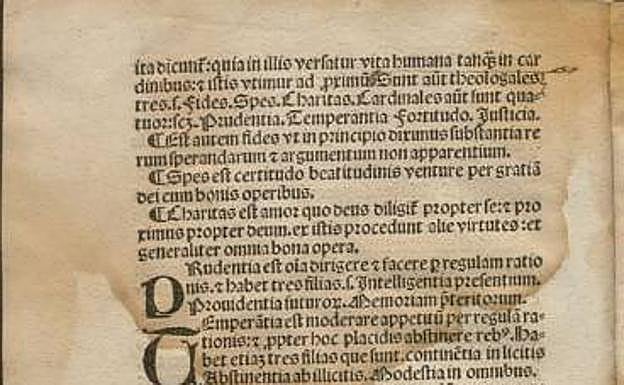 ita dicunt᷑: quia in illis versatur vita humana tanq̃ȝ in car
dinibus: ⁊ istis vtimur ad proximũ Sunt aũt theologales
tres. s. Fides. Spes. Charitas. Cardinales aũt sunt qua-
tuor: scȝ. Prudentia. Temperantia Fortitudo. Justicia.
¶ Est autem fides vt in principio diximus substantia re
rum sperandarum ⁊ argumentum non apparentium.
¶ Spes est certitudo beatitudinis venture per gratiã
dei cum bonis operibus.
¶ Charitas est amor quo deus diligit᷑ propter se: ⁊ pro
ximus propter deum. ex istis procedunt alie virtutes: ex
generaliter omnia bona opera.
PRudentia est oĩa dirigere ⁊ facere ꝑ regulam ratio
nis. ⁊ habet tres filias. s. Intelligentia presentium.
Prouidentia futuroꝝ. Memoriam p̃teritorum.
TEmperãtia est moderare appetitũ per regulã ra-
tionis: ⁊ ꝓpter hoc placidis abstinere rebꝰ. Ha-
bet etiaȝ tres filias que sunt. continẽtia in licitis
Abstinentia ab illicitis. Modestia in omnibus.